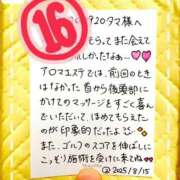 16
920タマ様へ
もらってまた会えて
しかったなぁ…♥♥
アロマエステでは、前回のとき
はなかった 首から後頭部に
かけてのマッサージをすごく喜ん
でいただいて、ほめてもらえた
のが印象的だったよ
また、ゴルフのスコアを伸ばしに
こっそり施術を受けに来てね
2025/8/15